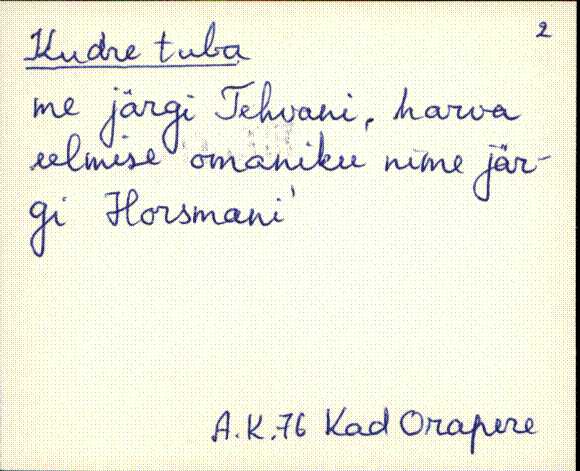 2
Kudre tuba
me järgi Tehvani, harva
eelmise omaniku nime jär-
gi Horsmani'
A.K.76 Kad Orapere